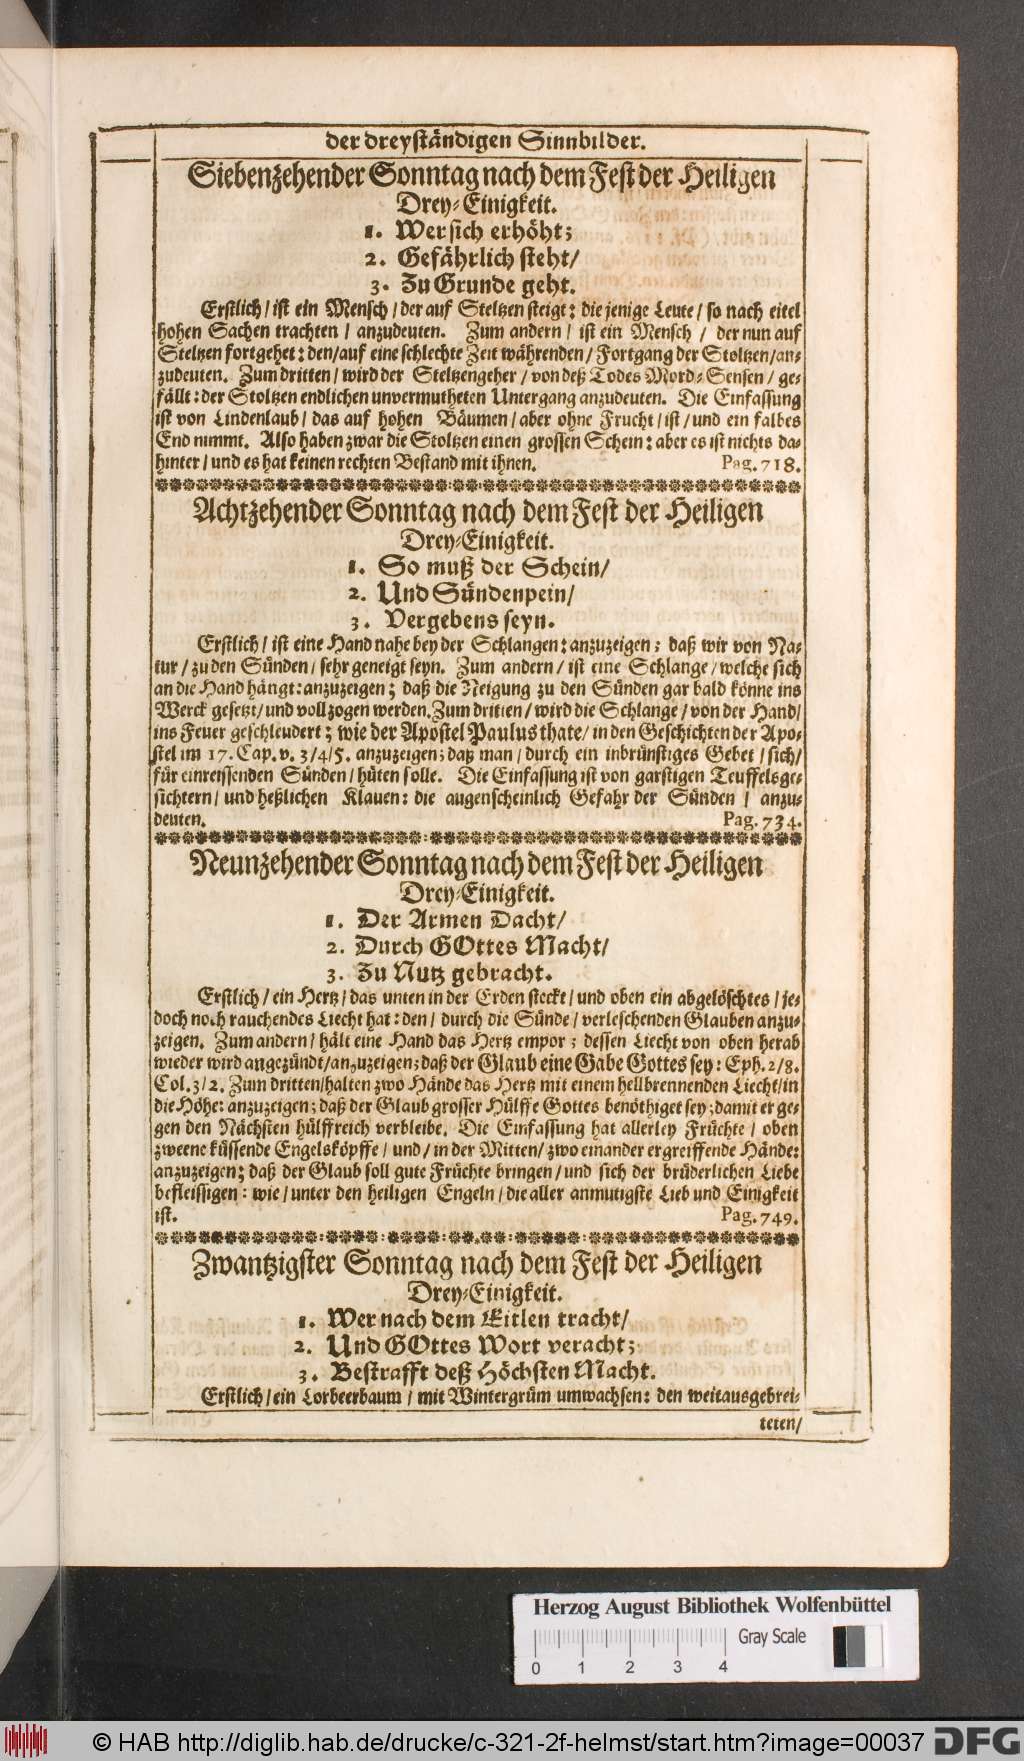 der dreyständigen Sinnbilder.
Siebenzehender Sonntag nach dem Fest der Heiligen
Drey-Einigkeit.
1. Wer sich erhöht;
2. Gefährlich steht/
3. Zu Grunde geht.
Erstlich/ ist ein Mensch/ der auf Steltzen steigt: die jenige Leute/ so nach eitel
hohen Sachen trachten/ anzudeuten. Zum andern/ ist ein Mensch/ der nun auf
Steltzen fortgehet: den/ auf eine schlechte Zeit währenden/ Fortgang der Stoltzen/ an-
zudeuten. Zum dritten/ wird der Steltzengeher/ von deß Todes Mord-Sensen/ ge-
fällt: der Stoltzen endlichen unvermutheten Untergang anzudeuten. Die Einfassung
ist von Lindenlaub/ das auf hohen Bäumen/ aber ohne Frucht/ ist/ und ein falbes
End nimmt. Also haben zwar die Stoltzen einen grossen Schein: aber es ist nichts da-
hinter/ und es hat keinen rechten Bestand mit ihnen. Pag. 718.
Achtzehender Sonntag nach dem Fest der Heiligen
Drey-Einigkeit.
1. So muß der Schein/
2. Und Sündenpein/
3. Vergebens seyn.
Erstlich/ ist eine Hand nahe bey der Schlangen: anzuzeigen; daß wir von Na-
tur/ zu den Sünden/ sehr geneigt seyn. Zum andern/ ist eine Schlange/ welche sich
an die Hand hängt: anzuzeigen; daß die Neigung zu den Sünden gar bald könne ins
Werck gesetzt/ und vollzogen werden. Zum dritten/ wird die Schlange/ von der Hand/
ins Feuer geschleudert; wie der Apostel Paulus thate/ in den Geschichten der Apo-
stel im 17. Cap. v. 3/4/5. anzuzeigen; daß man/ durch ein inbrünstiges Gebet/ sich/
für einreissenden Sünden/ hüten solle. Die Einfassung ist von garstigen Teuffelsge-
sichtern/ und heßlichen Klauen: die augenscheinlich Gefahr der Sünden/ anzu-
deuten. Pag. 734.
Neunzehender Sonntag nach dem Fest der Heiligen
Drey-Einigkeit.
1. Der Armen Dacht/
2. Durch GOttes Macht/
3. Zu Nutz gebracht.
Erstlich/ ein Hertz/ das unten in der Erden steckt/ und oben ein abgelöschtes/ je-
doch noch rauchendes Liecht hat: den/ durch die Sünde/ verleschenden Glauben anzu-
zeigen. Zum andern/ hält eine Hand das Hertz empor; dessen Liecht von oben herab
wieder wird angezündt/ anzuzeigen; daß der Glaub eine Gabe Gottes sey: Eph. 2/8.
Col. 3/2. Zum dritten/ halten zwo Hände das Hertz mit einem hellbrennenden Liecht/ in
die Höhe: anzuzeigen; daß der Glaub grosser Hülffe Gottes benöthiget sey; damit er ge-
gen den Nächsten hülffreich verbleibe. Die Einfassung hat allerley Früchte/ oben
zweene küssende Engelsköpffe/ und/ in der Mitten/ zwo einander ergreiffende Hände:
anzuzeigen; daß der Glaub soll gute Früchte bringen/ und sich der brüderlichen Liebe
befleissigen: wie/ unter den heiligen Engeln/ die aller anmutigste Lieb und Einigkeit
ist. Pag. 749.
Zwantzigster Sonntag nach dem Fest der Heiligen
Drey-Einigkeit.
1. Wer nach dem Eitlen tracht/
2. Und GOttes Wort veracht;
3. Bestrafft deß Höchsten Macht.
Erstlich/ ein Lorbeerbaum/ mit Wintergrüm umwachsen: den weitausgebrei-
teten/
Herzog August Bibliothek Wolfenbüttel
Gray Scale
0 1 2 3 4
© HAB http://diglib.hab.de/drucke/c-321-2f-helmst/start.htm?image=00037 DFG